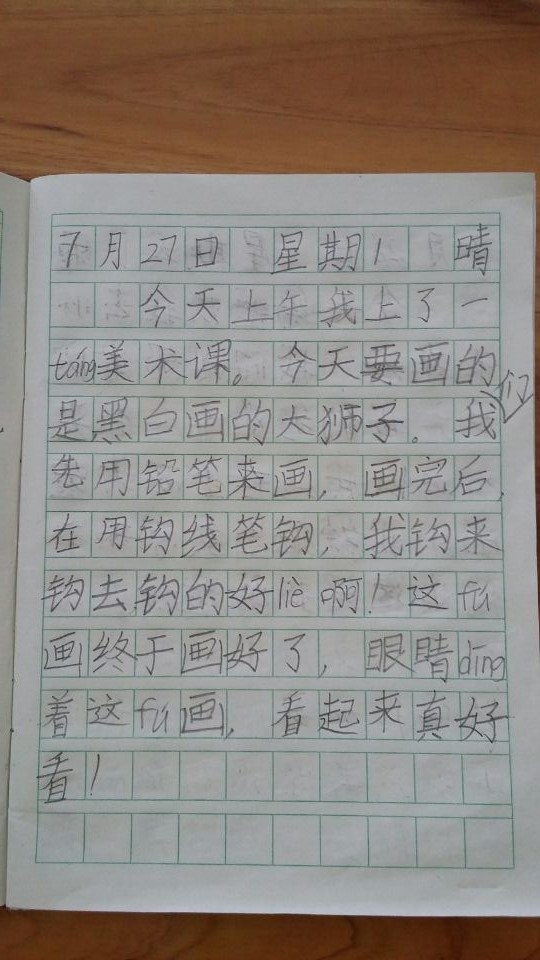 7月27日 星期1 晴
今天上午我上了一
táng美术课。今天要画的
是黑白画的大狮子。我们
先用铅笔来画,画完后,
在用钩线笔钩,我钩来
钩去钩的好liè啊!这fú
画终于画好了,眼睛dīng
着这fú画,看起来真好
看!